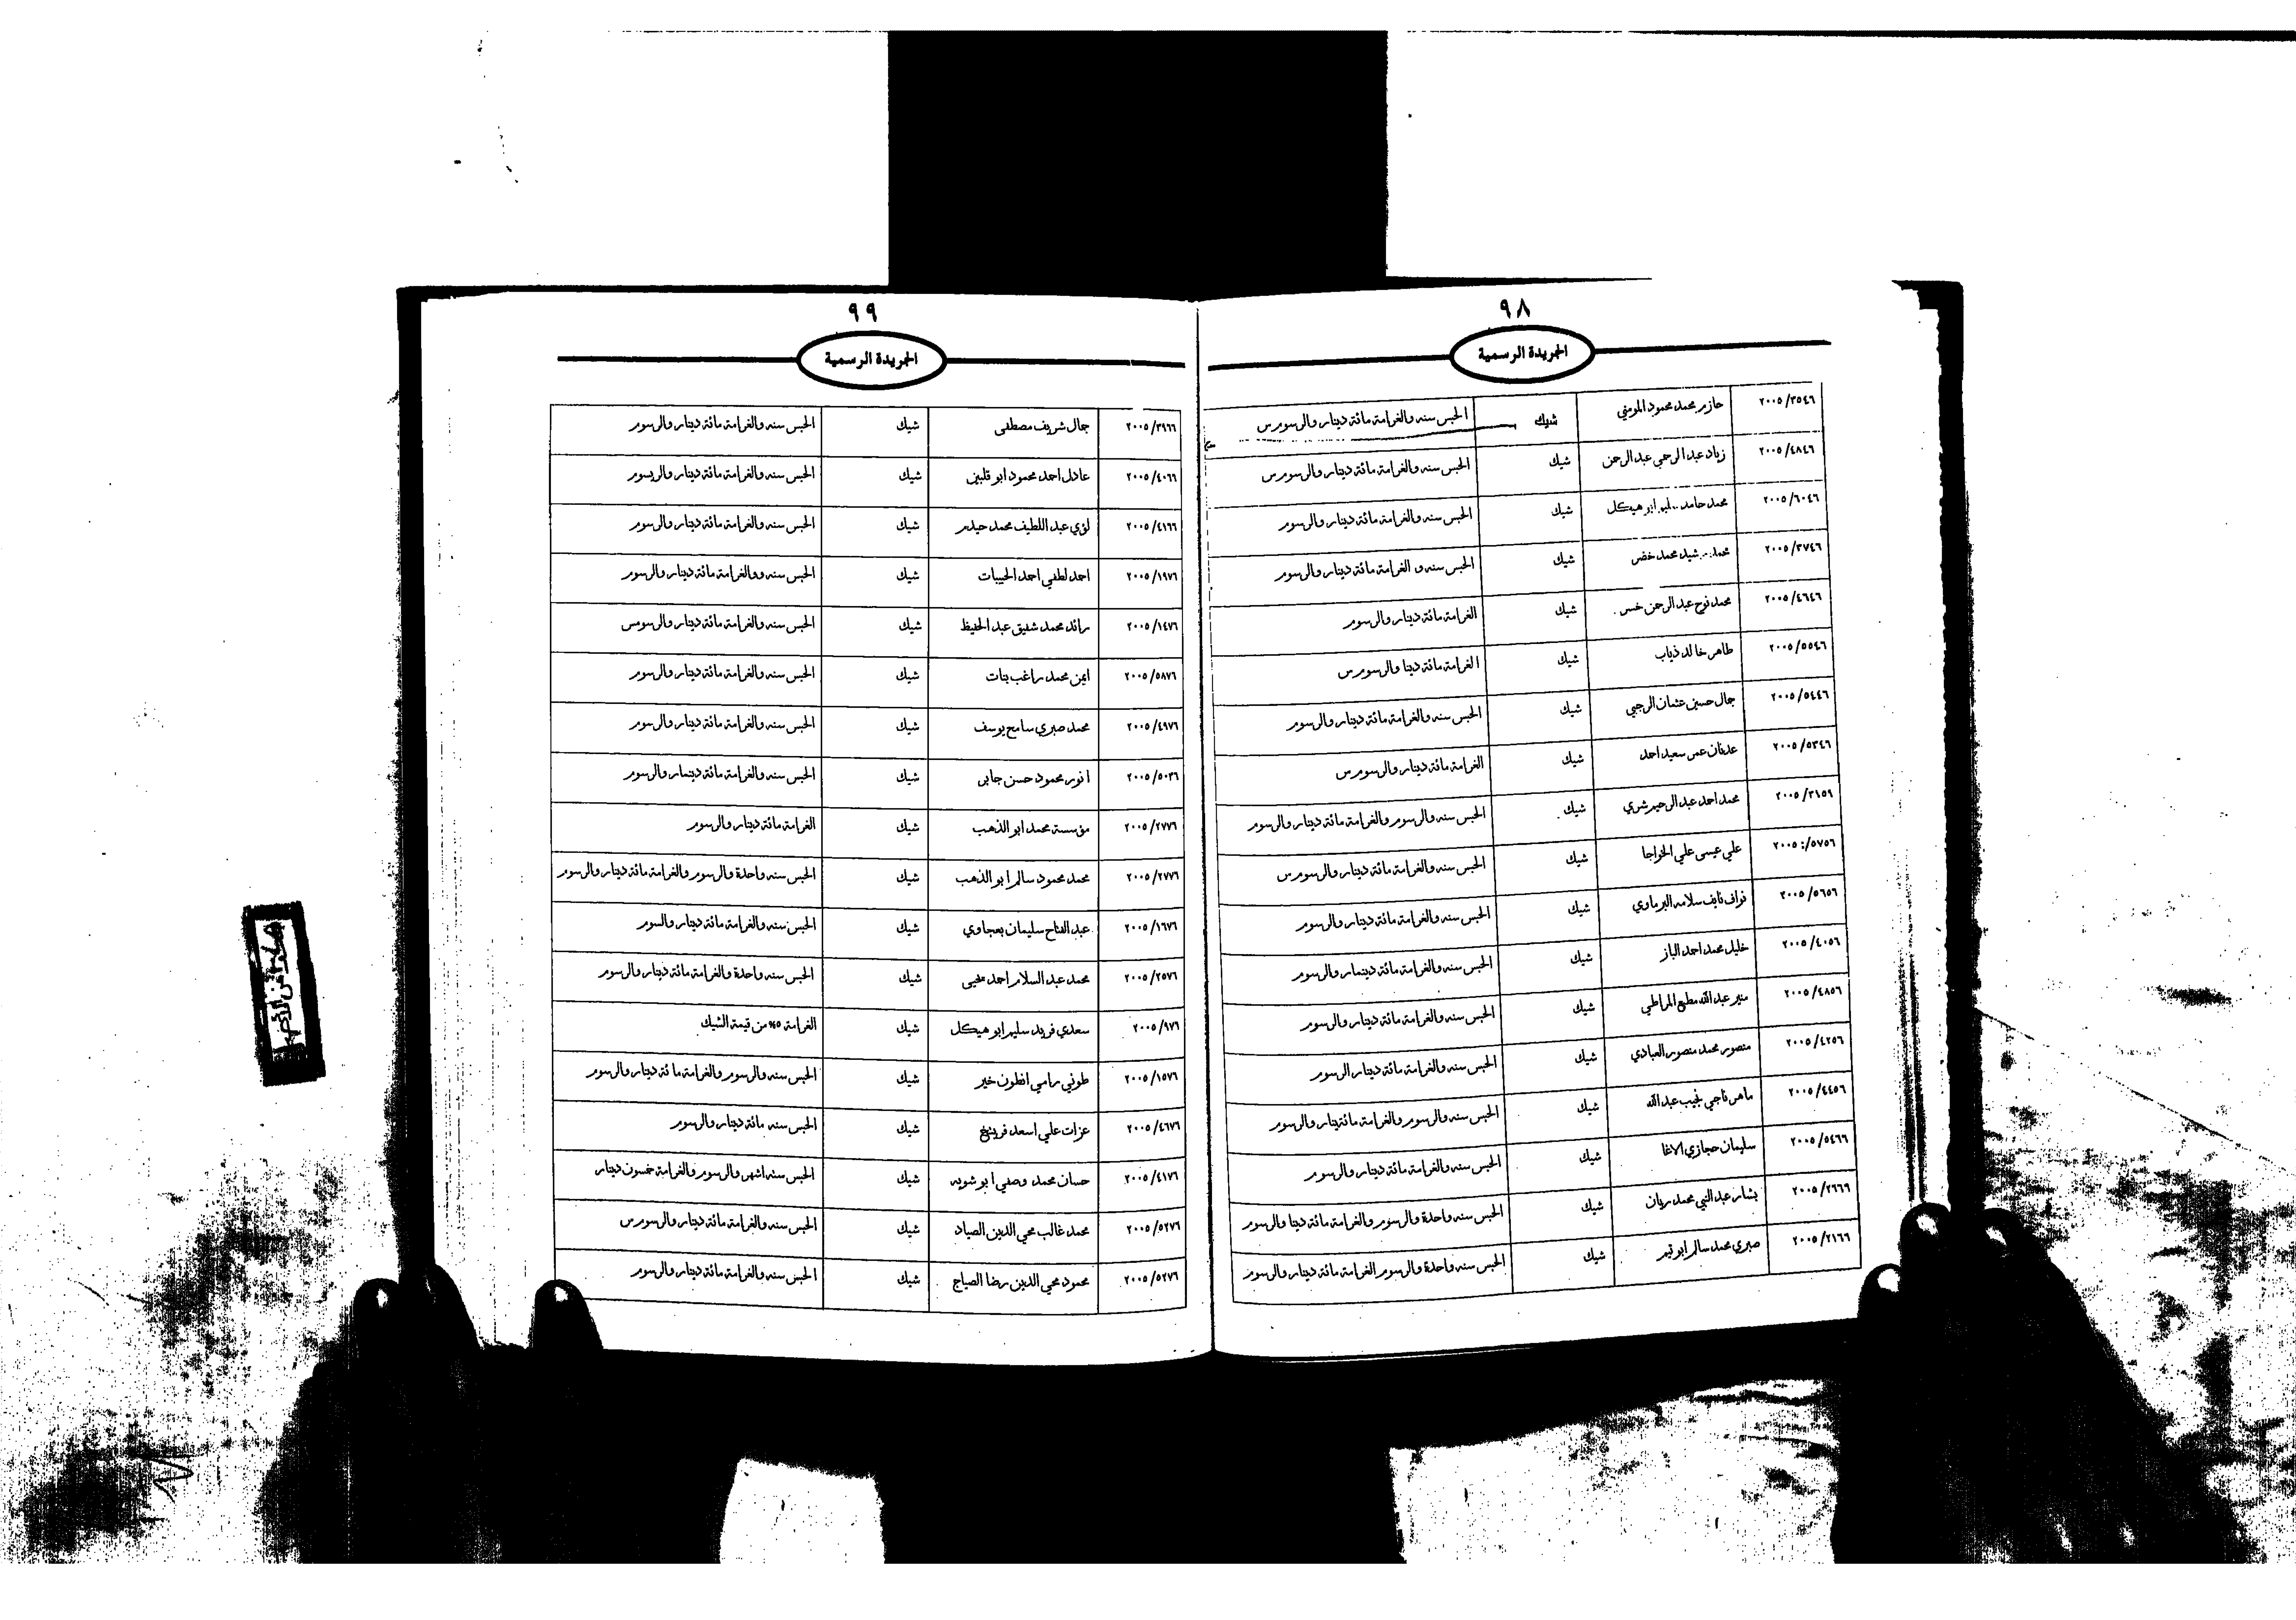 ٩٨
الجريدة الرسمية
٢٠٠٥/٣٥٤٦ حازم محمد محمود المومني شيك الحبس سنه والغرامة مائة دينار والرسومرس
٢٠٠٥/٤٨٤٦ زياد عبد الرحمي عبد الرحمن شيك الحبس سنه والغرامة مائة دينار والرسومرس
٢٠٠٥/٦٠٤٦ محمد حامد ابو هيكل شيك الحبس سنه والغرامة مائة دينار والرسوم
٢٠٠٥/٣٧٤٦ محمد رشيد محمد خضر شيك الحبس سنه و الغرامة مائة دينار والرسوم
٢٠٠٥/٤٦٤٦ محمد نوح عبد الرحمن شيك الغرامة مائة دينار والرسوم
٢٠٠٥/٥٥٤٦ طاهر خالد ذياب شيك الغرامة مائة دينا والرسومرس
٢٠٠٥/٥٤٤٦ جمال حسين عثمان الرجبي شيك الحبس سنه والغرامة مائة دينار والرسوم
٢٠٠٥/٥٣٤٦ عدنان عمر سعيد احمد شيك الغرامة مائة دينار والرسومرس
٢٠٠٥/٣١٥٩ محمد احمد عبد الرحيم شري شيك الحبس سنه والرسوم والغرامة مائة دينار والرسوم
٢٠٠٥/٥٧٥٦ علي عيسى علي الخواجا شيك الحبس سنه والغرامة مائة دينار والرسومرس
٢٠٠٥/٥٦٥٦ نواف نايف سلامه البرماوي شيك الحبس سنه والغرامة مائة دينار والرسوم
٢٠٠٥/٤٠٥٦ خليل محمد احمد الباز شيك الحبس سنه والغرامة مائة دينمار والرسوم
٢٠٠٥/٤٨٥٦ منير عبد الله مطيع شيك الحبس سنه والغرامة مائة دينار والرسوم
٢٠٠٥/٤٢٥٦ منصور محمد منصور العبادي شيك الحبس سنه والغرامة مائة دينار الرسوم
٢٠٠٥/٤٤٥٦ ماهر ناجي نجيب عبد الله شيك الحبس سنه والرسوم والغرامة مائةينار والرسوم
٢٠٠٥/٥٤٦٦ سليمان حجازي الاغا شيك الحبس سنه والغرامة مائة دينار والرسوم
٢٠٠٥/٢٦٦٦ بشار عبد النبي محمد ريان شيك الحبس سنه واحدة والرسوم والغرامة مائة دينا والرسوم
٢٠٠٥/٢١٦٦ صبري محمد سالم ابو تيم شيك الحبس سنه واحدة والرسوم الغرامة مائة دينار والرسوم
٩٩
الجريدة الرسمية
٢٠٠٥/٣٩٦٦ جمال شريف مصطفى شيك الحبس سنه والغرامة مائة دينار والرسوم
٢٠٠٥/٤٠٦٦ عادل احمد محمود ابو قلبين شيك الحبس سنه والغرامة مائة دينار والريسوم
٢٠٠٥/٤١٦٦ لؤي عبد اللطيف محمد حيدر شيك الحبس سنه والغرامة مائة دينار والرسوم
٢٠٠٥/١٩٧٦ احمد لطفي احمد الحبيبات شيك الحبس سنه ووالغرامة مائة دينار والرسوم
٢٠٠٥/١٤٧٦ رائد محمد شفيق عبد الحفيظ شيك الحبس سنه والغرامة مائة دينار والرسومس
٢٠٠٥/٥٨٧٦ ايمن محمد راغب بنات شيك الحبس سنه والغرامة مائة دينار والرسوم
٢٠٠٥/٤٩٧٦ محمد صبري سامح يوسف شيك الحبس سنه والغرامة مائة دينار والرسوم
٢٠٠٥/٥٠٣٦ انور محمود حسن جابر شيك الحبس سنه والغرامة مائة دينمار والرسوم
٢٠٠٥/٢٧٧٦ مؤسسة محمد ابو الذهب شيك الغرامة مائة دينار والرسوم
٢٠٠٥/٢٧٧٦ محمد محمود سالم ابو الذهب شيك الحبس سنه واحدة والرسوم والغرامة مائة دينار والرسوم
٢٠٠٥/١٦٧٦ عبد الفتاح سليمان بعجاوي شيك الحبس سنه والغرامة مائة دينار والسوم
٢٠٠٥/٢٥٧٦ محمد عبد السلام احمد شيك الحبس سنه واحدة والغرامة مائة دينار والرسوم
٢٠٠٥/٩٧٦ سعدي فريد سليم ابو هيكل شيك الغرامة ٥% من قيمة الشيك
٢٠٠٥/١٥٧٦ طوني رامي انطون خير شيك الحبس سنه والرسوم والغرامة مائة دينار والرسوم
٢٠٠٥/٤٦٧٦ عزات علي اسعد فرينج شيك الحبس سنه مائة دينار والرسوم
٢٠٠٥/٤١٧٦ حسان محمد وصفي ابو شويه شيك الحبس سته اشهر والرسوم والغرامة خمسون دينار
٢٠٠٥/٥٢٧٦ محمد غالب محي الدين الصياد شيك الحبس سنه والغرامة مائة دينار والرسومرس
٢٠٠٥/٥٢٧٦ محمود محي الدين رضا الصباح شيك الحبس سنه والغرامة مائة دينار والرسوم